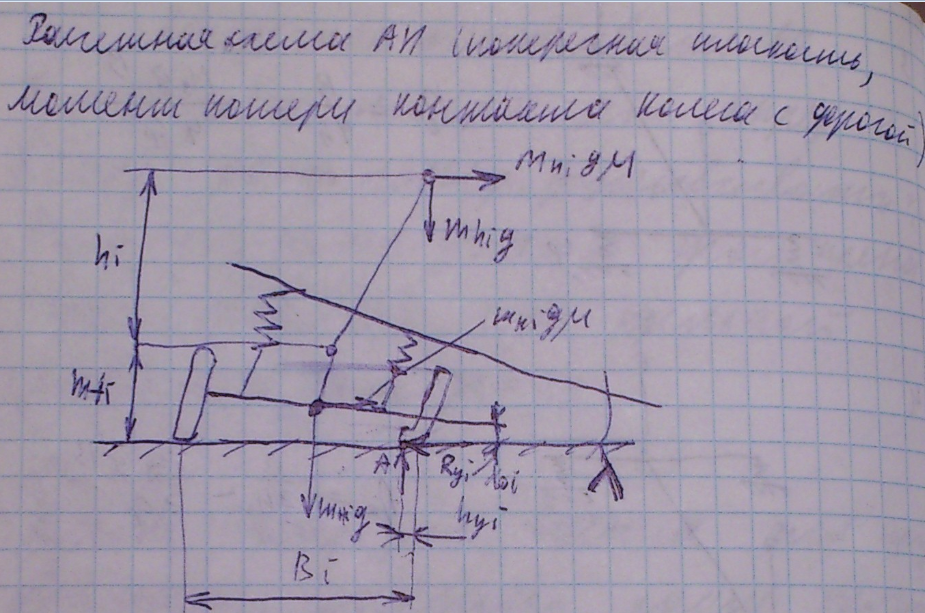 Расчетная схема АП (поперечная плоскость,
момент потери контакта колеса с дорогой)
mнigμ
hi
mhig
mнigμ
mfi
A
Ryi
roi
mнig
hyi
Bi